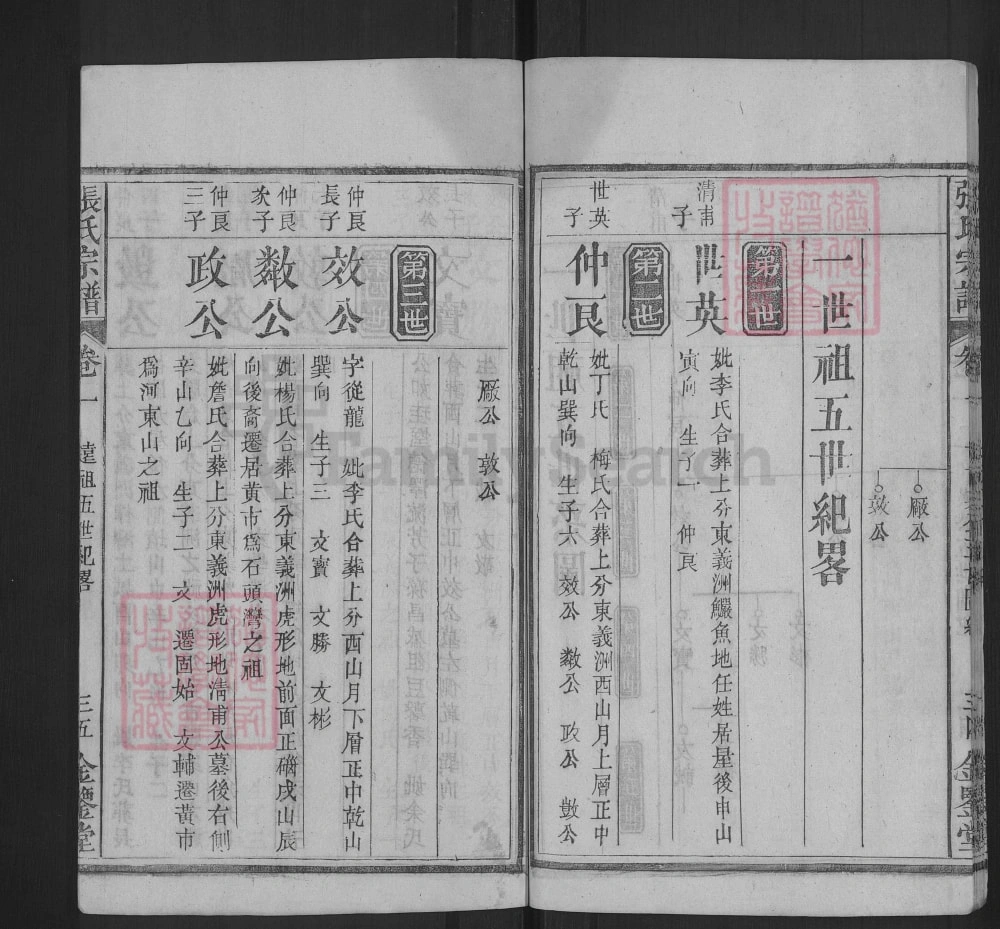 廠公
效公
一世祖五世紀畧
第二世
清甫
子
世英
妣李氏合葬上分東義洲鱺魚地任姓居屋後申山
寅向 生子一 仲良
第二世
世英
子
仲良
妣丁氏 梅氏合葬上分東義洲西山月上層正中
乾山巽向 生子六 效公 敹公 政公 數公
廠公 敦公
第三世
仲良
長子
效公
字從龍 妣李氏合葬上分西山月下層正中乾山
巽向 生子三 文寳 文勝 文彬
仲良
次子
敹公
妣楊氏合葬上分東義洲虎形地前面正磡戌山辰
向後裔遷居黃市爲石頭灣之祖
仲良
三子
政公
妣詹氏合葬上分東義洲虎形地清甫公墓後右側
辛山乙向 生子二 文 遷固始 文輔遷黃市
爲河東山之祖
張氏宗譜
卷一
遠祖五世紀畧
三五
金鑒堂
FamilySearch